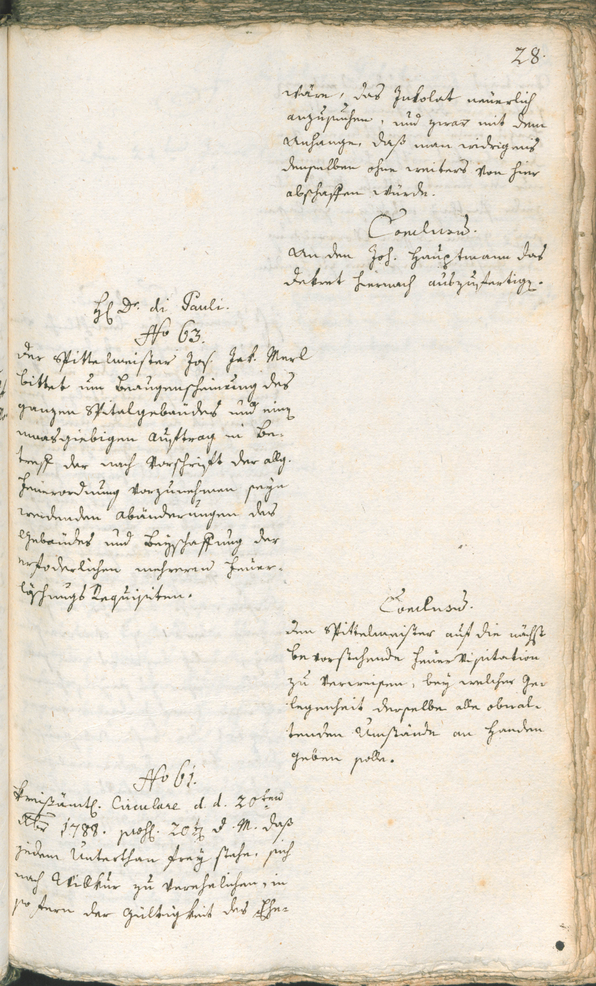 28.
wäre, das Inkolat neuerlich
anzusuchen, und zwar mit dem
Anhange, daß man widrigens
denselben ohne weiters von hier
abschaffen würde.
Conclusum.
An den Joh. Hauptmann das
Dekret hiernach auszufertigen.
H. Dr. di Pauli.
No 63.
Der Spittelmeister Jos. Jak. Merl
bittet um Beaugenscheinigung des
ganzen Spitalgebäudes und einen
maasgiebigen Auftrag in Be-
treff der nach Vorschrift der allg.
Feuerordnung vorzunehmen seyn
werdenden Abänderungen des
Gebäudes und Beyschaffung der
erforderlichen mehreren Feuer-
löschungs Requisiten.
Conclusum.
Den Spittelmeister auf die nächst
bevorstehende Feuer Visitation
zu verweisen, bey welcher Ge-
legenheit derselbe alle obwal-
tenden Umstände an Handen
geben solle.
No 61.
Kreisämtl. Circulare d. d. 20ten
1788. 20 d. M. daß
jedem Unterthan frey stehe, sich
nach Willkür zu verehelichen, in
sofern der Gültigkeit des Ehe-